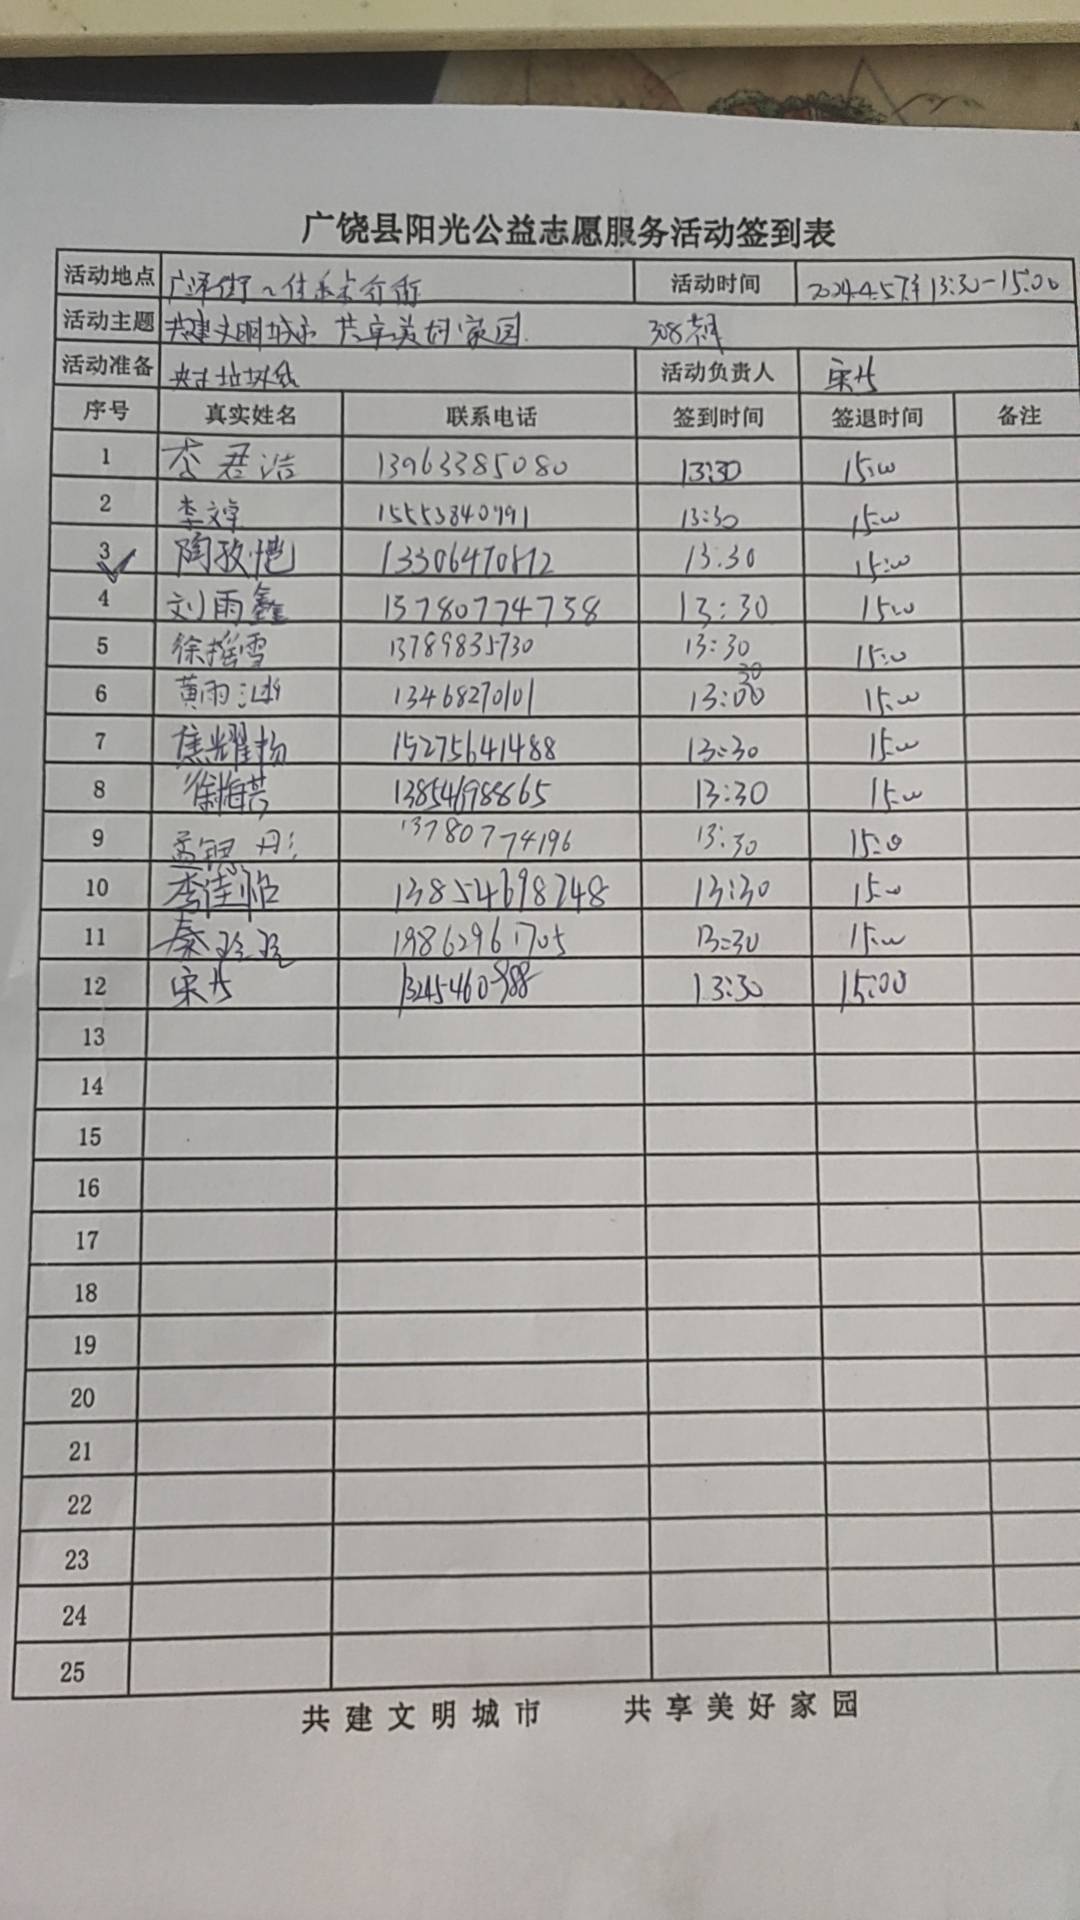 广饶县阳光公益志愿服务活动签到表
活动地点 广泽街~ 活动时间 2024.4.5下午13:30-15:00
活动主题 共建文明城市 共享美好家园 308期
活动准备 夹子垃圾袋 活动负责人 宋丛
序号 真实姓名 联系电话 签到时间 签退时间 备注
1 李君浩 13963385080 13:30 15:00
2 李文卓 15553840791 13:30 15:00
3 陶孜恺 13306470812 13:30 15:00
4 刘雨鑫 13780774738 13:30 15:00
5 徐瑶雪 13789835730 13:30 15:00
6 黄雨 13468270101 13:30 15:00
7 焦耀扬 15275641488 13:30 15:00
8 徐梅芸 13854698865 13:30 15:00
9 孟 13780774196 13:30 15:00
10 李佳怡 13854698748 13:30 15:00
11 秦玲玲 19862961705 13:30 15:00
12 宋丛 13245460988 13:30 15:00
13
14
15
16
17
18
19
20
21
22
23
24
25
共建文明城市 共享美好家园